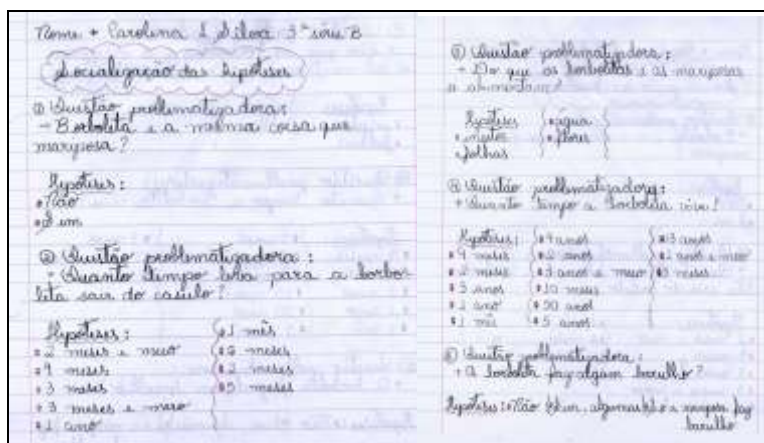 Nome + Carolina S Silva 3ª série B
Socialização das hipóteses
① Questão problematizadora:
- Borboleta é a mesma coisa que
mariposa?
Hipóteses:
• Não
• Sim
② Questão problematizadora:
- Quanto tempo leva para a borbo
leta sair do casulo?
Hipóteses:
• 2 meses e meio
• 9 meses
• 3 meses
• 3 meses e meio
• 1 ano
• 1 mês
• meses
• 2 meses
• 5 meses
③ Questão problematizadora:
+ Do que as borboletas e as mariposas
se alimentam?
Hipóteses
• folhas
• água
• flores
④ Questão problematizadora:
+ Quanto tempo a borboleta vive?
Hipóteses:
• 9 meses
• 2 meses
• 5 anos
• 1 ano
• 1 mês
• 9 anos
• 2 anos
• 3 anos e meio
• 10 meses
• 50 anos
• 5 anos
• 13 anos
• 2 anos e meio
• 3 meses
⑤ Questão problematizadora:
+ A borboleta faz algum barulho?
Hipóteses: • Não • Sim, algumas • Só a mariposa faz
barulho